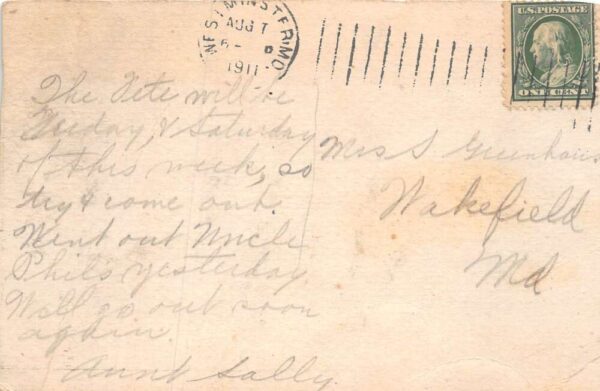 WESTMINSTER, MD.
AUG 7
6- P
1911
U.S. POSTAGE
ONE CENT
The Fete will be
Friday, & Saturday
of this week, so
try & come out.
Went out Uncle
Phil's yesterday
Will go out soon
again.
Aunt Sally.
Miss S Greenhous
Wakefield
Md